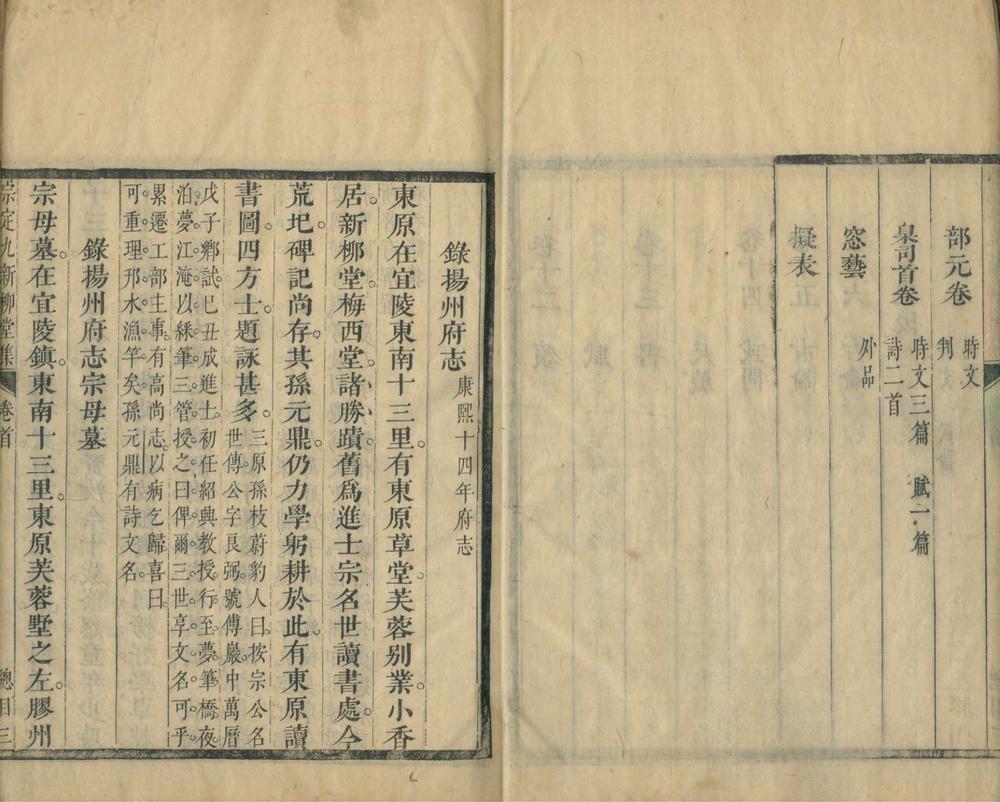 部元卷 時文
判
臬司首卷 時文三篇 賦二篇
詩二首
窓藝 外品
擬表
錄揚州府志 康熙十四年府志
東原在宜陵東南十三里有東原草堂芙蓉别業小香
居新柳堂梅西堂諸勝蹟舊爲進士宗名世讀書處今
荒圯碑記尚存其孫元鼎仍力學躬耕於此有東原讀
書圖四方士題詠甚多 三原孫枝蔚豹人曰按宗公名
世傳公字良弼號傅巖中萬曆
戊子鄉試巳丑成進士初任紹興教授行至夢筆橋夜
泊夢江淹以綵筆三管授之曰俾爾三世享文名可乎
累遷工部主事有高尚志以病乞歸喜曰
可重理邗水漁竿矣孫元鼎有詩文名
錄揚州府志宗母墓
宗母墓在宜陵鎮東南十三里東原芙蓉墅之左膠州
宗定九新柳堂集 卷首 總目三